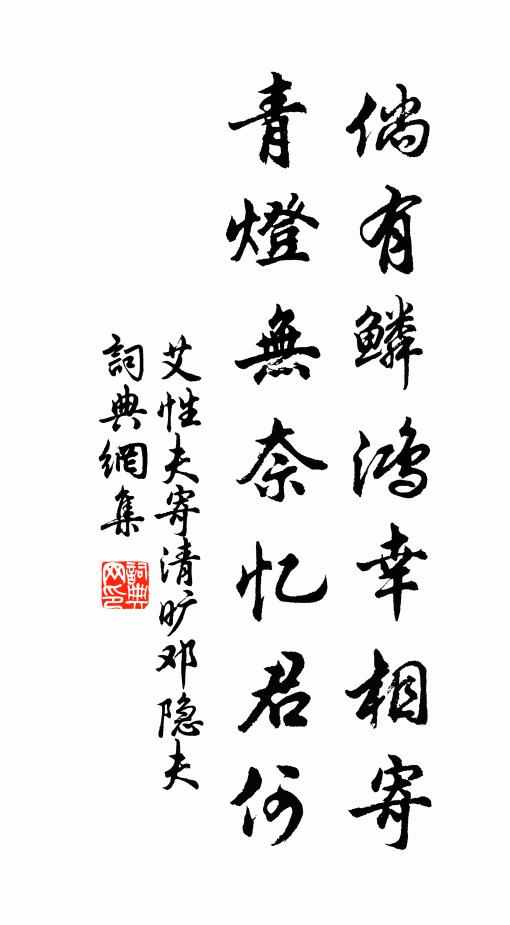 倘有鳞鸿幸相寄
青燈無奈忆君何
艾性夫寄清旷邓隐夫
詞典網集
詞典网印